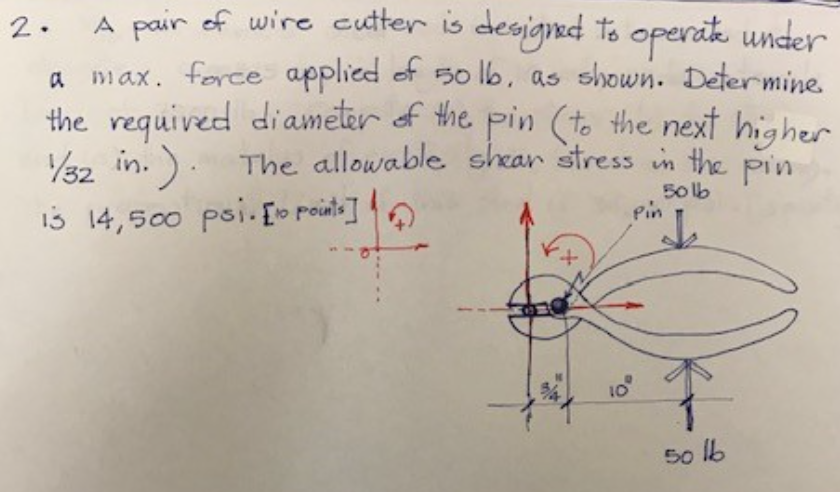 2. A pair of wire cutter is designed to operate under
a max. force applied of 50 lb, as shown. Determine
the required diameter of the pin (to the next higher
1/32 in.). The allowable shear stress in the pin
is 14,500 psi. [10 points]
+
o
50 lb
pin
+
3/4"
10"
50 lb